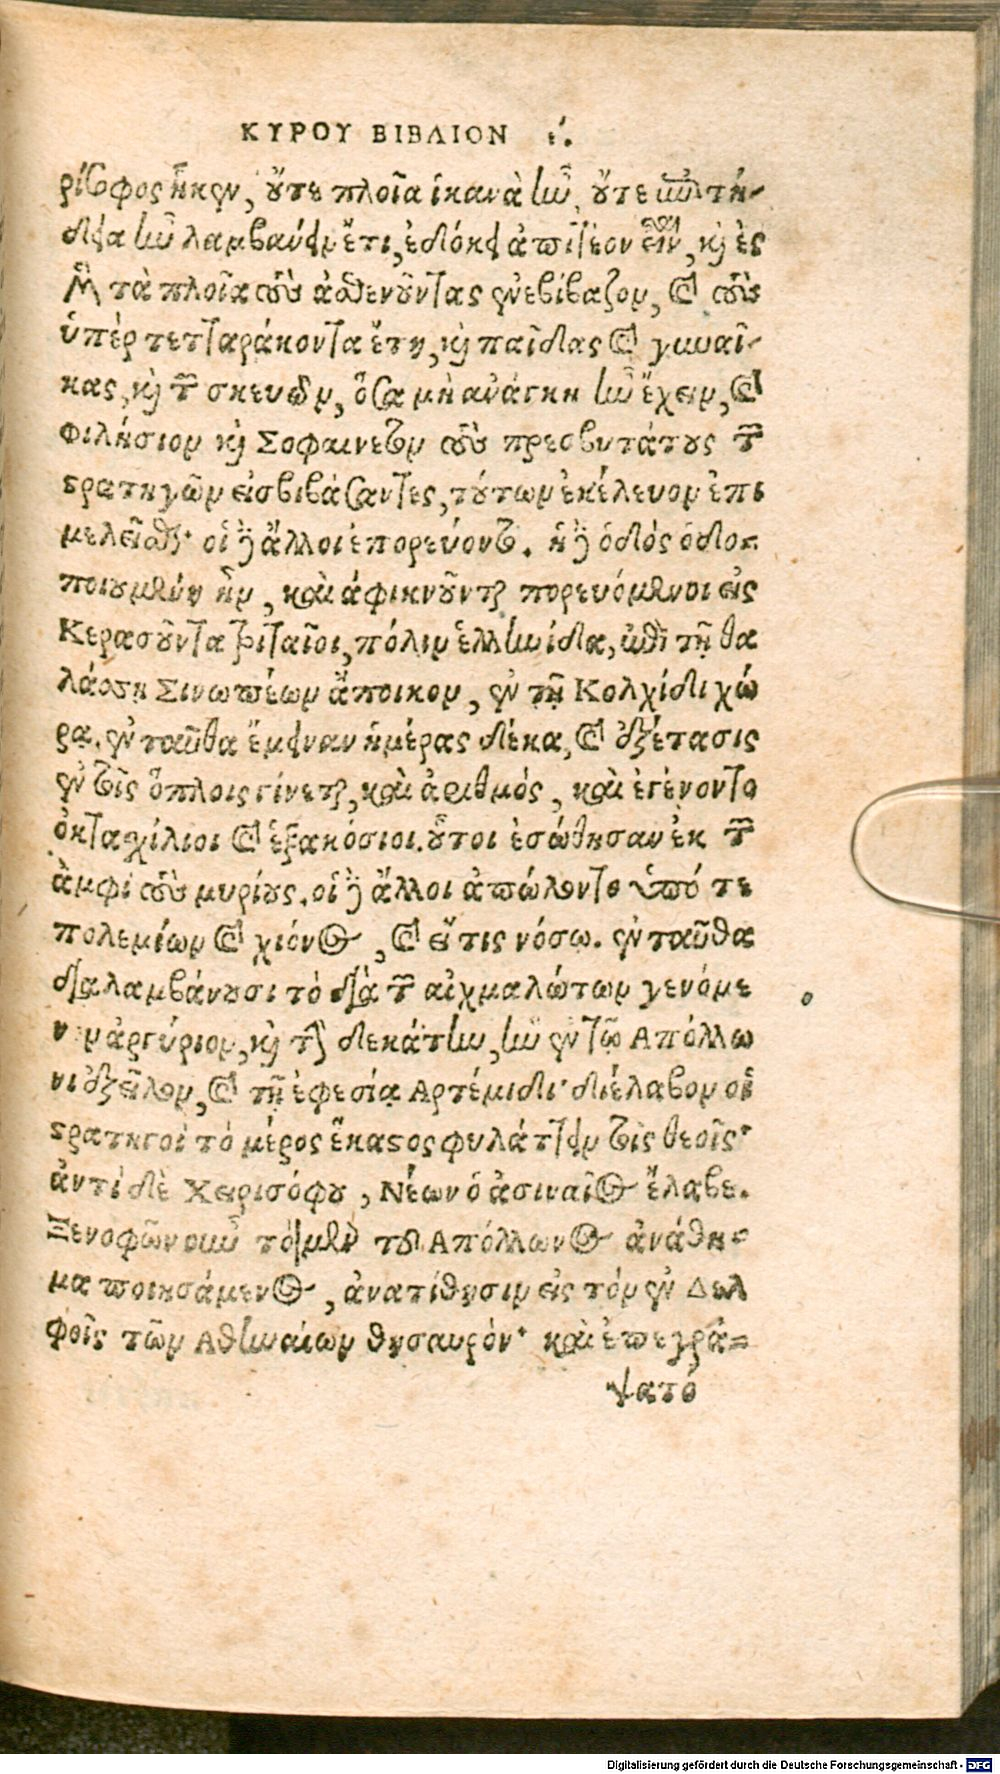 ΚΥΡΟΥ ΒΙΒΛΙΟΝ ε'.
ρίσοφος ἧκεν, οὔτε πλοῖα ἱκανὰ ἦν, οὔτε ἐπιτή-
δεια ἦν λαμβάνειν ἔτι, ἐδόκει ἀπιτέον εἶναι, καὶ ἐς
μὲν τὰ πλοῖα τοὺς ἀσθενοῦντας ἐνεβίβαζον, καὶ τοὺς
ὑπὲρ τετταράκοντα ἔτη, καὶ παῖδας καὶ γυναῖ-
κας, καὶ τῶν σκευῶν, ὅσα μὴ ἀνάγκη ἦν ἔχειν, καὶ
Φιλήσιον καὶ Σοφαίνετον τοὺς πρεσβυτάτους τῶν
στρατηγῶν εἰσβιβάσαντες, τούτων ἐκέλευον ἐπι
μελεῖσθαι· οἱ δὲ ἄλλοι ἐπορεύοντο. ἡ δὲ ὁδὸς ὁδο-
ποιουμένη ἦν, καὶ ἀφικνοῦνται πορευόμενοι εἰς
Κερασοῦντα τριταῖοι, πόλιν ἑλληνίδα, ἐπὶ τῇ θα
λάσσῃ Σινωπέων ἄποικον, ἐν τῇ Κολχίδι χώ
ρᾳ. ἐνταῦθα ἔμειναν ἡμέρας δέκα, καὶ ἐξέτασις
ἐν τοῖς ὅπλοις γίνεται, καὶ ἀριθμός, καὶ ἐγένοντο
ὀκτακχίλιοι καὶ ἑξακόσιοι. οὗτοι ἐσώθησαν ἐκ τῶν
ἀμφὶ τοὺς μυρίους. οἱ δὲ ἄλλοι ἀπώλοντο ὑπό τε
πολεμίων καὶ χιόνος, καὶ εἴ τις νόσω. ἐνταῦθα
διαλαμβάνουσι τὸ διὰ τῶν αἰχμαλώτων γενόμε
νον ἀργύριον, καὶ τὴν δεκάτην, ἣν ἐν τῷ Ἀπόλλω
νι ἐξεῖλον, καὶ τῇ ἐφεσίᾳ Ἀρτέμιδι· διέλαβον οἱ
στρατηγοὶ τὸ μέρος ἕκαστος φυλάττειν τοῖς θεοῖς·
ἀντὶ δὲ Χειρισόφου, Νέων ὁ ἀσιναῖος ἔλαβε.
Ξενοφῶν οὖν τὸ μὲν τοῦ Ἀπόλλωνος ἀνάθη-
μα ποιησάμενος, ἀνατίθησιν εἰς τὸν ἐν Δελ
φοῖς τῶν Ἀθηναίων θησαυρόν· καὶ ἐπεγρά-
ψατό
Digitalisierung gefördert durch die Deutsche Forschungsgemeinschaft - DFG